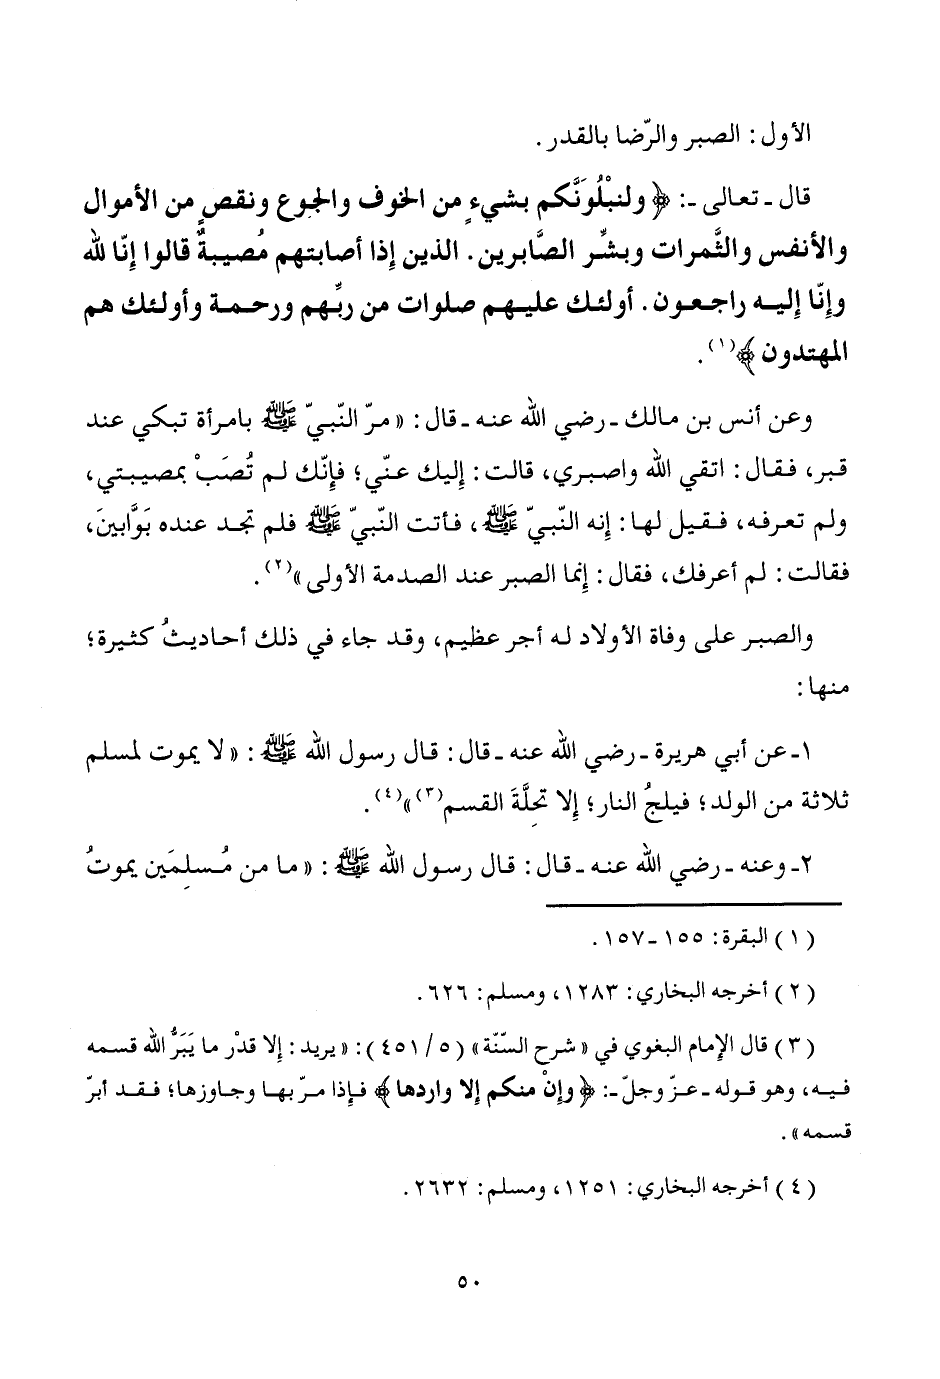 الأول : الصبر والرّضا بالقدر .
قال ـ تعالى ـ: ﴿ ولنبْلُوَنَّكم بشيءٍ من الخوف والجوع ونقصٍ من الأموال
والأنفس والثَّمرات وبشِّر الصَّابرين . الذين إذا أصابتهم مُصيبةٌ قالوا إنّا لله
وإنّا إليه راجعون . أولئك عليهم صلوات من ربِّهم ورحمة وأولئك هم
المهتدون ﴾(١) .
وعن أنس بن مالك ـ رضي الله عنه ـ قال : « مرّ النّبيّ ﷺ بامرأة تبكي عند
قبر، فقال : اتقي الله واصبري، قالت : إليك عنّي؛ فإنّك لم تُصَبْ بمصيبتي،
ولم تعرفه، فقيل لها : إنه النّبيّ ﷺ، فأتت النّبيّ ﷺ فلم تجد عنده بَوَّابينَ،
فقالت : لم أعرفك، فقال : إنما الصبر عند الصدمة الأولى »(٢) .
والصبر على وفاة الأولاد له أجر عظيم، وقد جاء في ذلك أحاديثُ كثيرة؛
منها :
١ـ عن أبي هريرة ـ رضي الله عنه ـ قال : قال رسول الله ﷺ : « لا يموت لمسلم
ثلاثة من الولد؛ فيلجُ النار؛ إلا تَحِلَّةَ القسم(٣)»(٤) .
٢ـ وعنه ـ رضي الله عنه ـ قال : قال رسول الله ﷺ : « ما من مُسلِمَين يموتُ
(١) البقرة : ١٥٥ ـ ١٥٧ .
(٢) أخرجه البخاري : ١٢٨٣، ومسلم : ٦٢٦ .
(٣) قال الإمام البغوي في «شرح السّنّة» (٥/ ٤٥١) : «يريد : إلا قدْر ما يَبَرُّ الله قسمه
فيه، وهو قوله ـ عزّ وجلّ ـ: ﴿ وإنْ منكم إلا واردها﴾ فإذا مرّ بها وجاوزها؛ فقد أبرّ
قسمه» .
(٤) أخرجه البخاري : ١٢٥١، ومسلم : ٢٦٣٢ .
٥٠